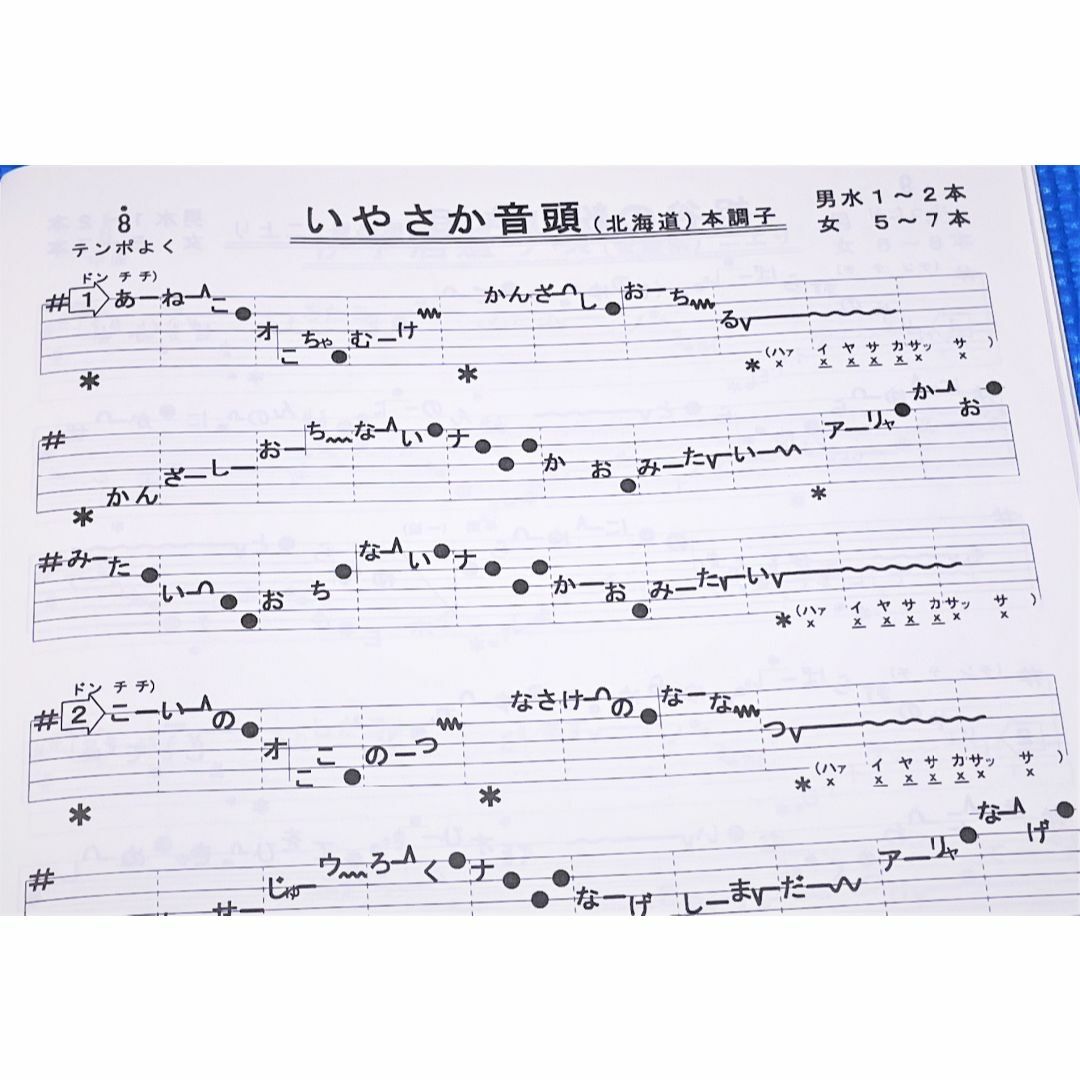 8
テンポよく
いやさか音頭（北海道）本調子
男水１～２本
女　５～７本
ドン チ チ)
# 1 あーねーこオこちゃむーけ かんざしおーちる
* * * (ハァ イ ヤ サ カ サッ サ )
x x x x x x x
# かんざーしーおーちーなーいナかおみーたーいー アーリャかーお
* *
# みーたいーおちなーいナかーおみーたーい
* (ハァ イ ヤ サ カ サッ サ )
x x x x x x x
ドン チ チ)
# 2 こーいーのオこのーつ なさけーのなーなつ
* * * (ハァ イ ヤ サ カ サッ サ )
x x x x x x x
# サーじゅーウーろーくナなーげしーまーだー アーリャなーげ